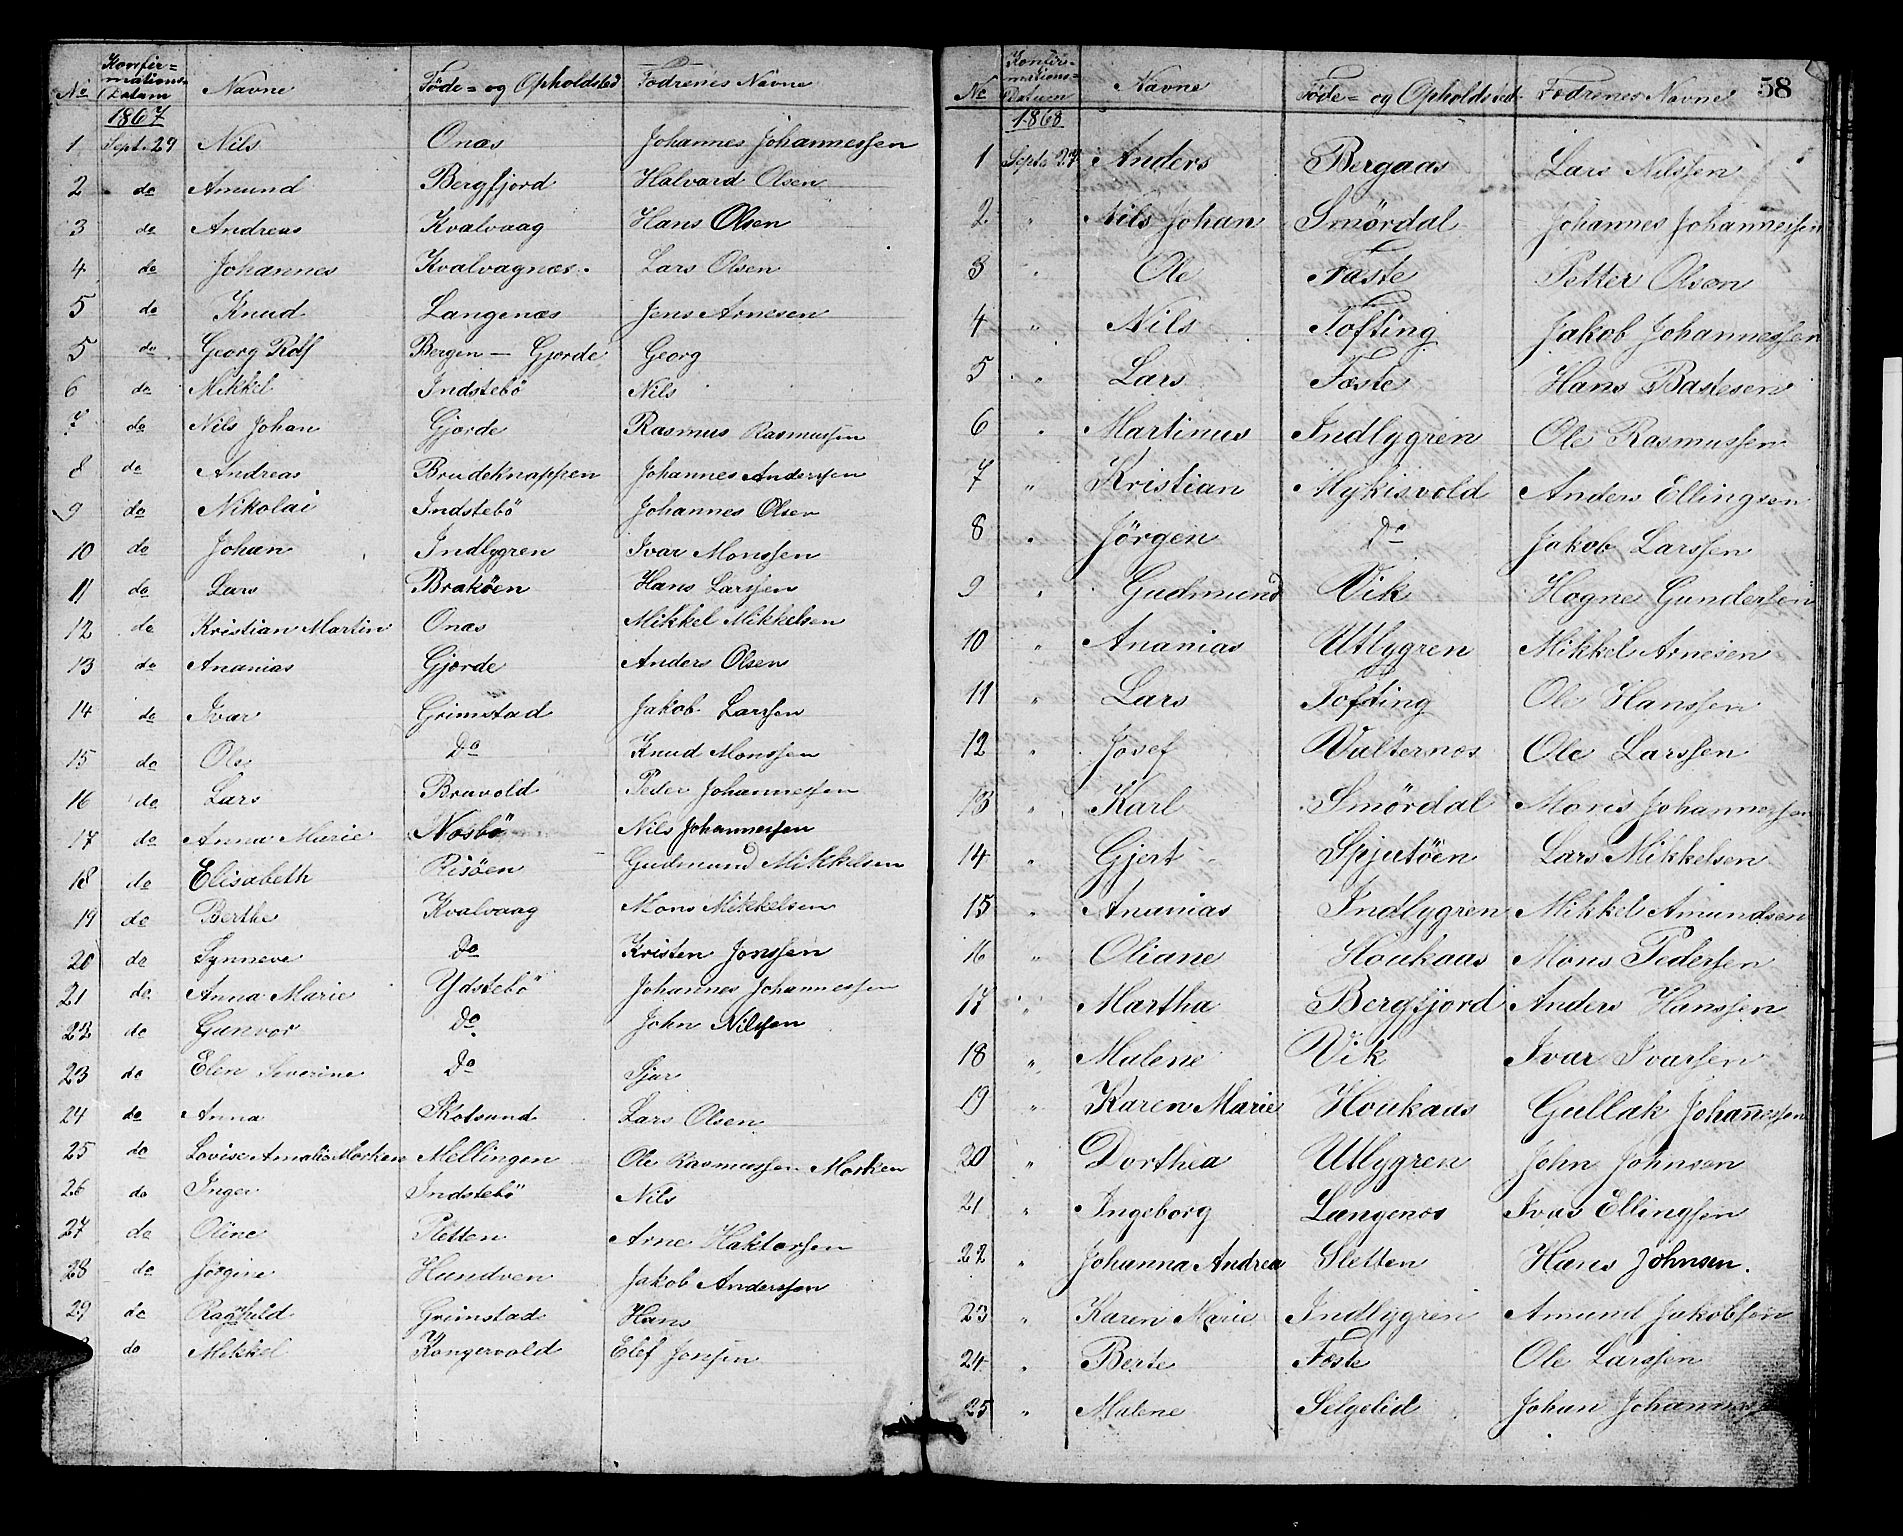 No Konfirmations-Datum Navne Føde- og Opholdsted Fædrenes Navne
1867
1 Sept. 29 Nils Onæs Johannes Johannessen
2 do Amund Bergfjord Halvard Olsen
3 do Andreas Kvalvaag Hans Olsen
4 do Johannes Kvalvagnæs Lars Olsen
5 do Knud Langenæs Jens Arnesen
5 do Georg Rolf Bergen - Gjerde Georg
6 do Mikkel Indstebö Nils
7 do Nils Johan Gjerde Rasmus Rasmussen
8 do Andreas Brudeknappen Johannes Anderssen
9 do Nikolai Indstebö Johannes Olsen
10 do Johan Indlygren Ivar Monssen
11 do Lars Brakøen Hans Larssen
12 do Kristian Martin Onæs Mikkel Mikkelsen
13 do Ananias Gjerde Anders Olsen
14 do Ivar Grimstad Jakob Larssen
15 do Ole Do Knud Monssen
16 do Lars Bruvold Peder Johannessen
17 do Anna Marie Nosbö Nils Johannessen
18 do Elisabeth Risöen Gudmund Mikkelsen
19 do Berthe Kvalvaag Mons Mikkelsen
20 do Synneve Do Kristen Jonssen
21 do Anna Marie Ydstebö Johannes Johannessen
22 do Gunvor Do John Nilssen
23 do Elen Severine Do Sjur
24 do Anna Skotsund Lars Olsen
25 do Lovise Amalia Morken Mellingen Ole Rasmussen Morken
26 do Inger Indstebö Nils
27 do Oline Sletten Arne Haktorsen
28 do Jørgine Hundven Jakob Anderssen
29 do Ragnhild Grimstad Hans
do Mikkel Kongervold Elef Jonssen
58
No Konfirmations-Datum Navne Føde- og Opholdsted Fædrenes Navne
1868
1 Septb 27 Anders Bergaas Lars Nilssen
2 " Nils Johan Smördal Johannes Johannessen
3 " Ole Fæste Petter Olsen
4 " Nils Tofting Jakob Johannessen
5 " Lars Fæste Hans Bastesen
6 " Martinus Indlygren Ole Rasmussen
7 " Kristian Mykisvold Anders Ellingsen
8 " Jörgen Do Jakob Larssen
9 " Gudmund Vik Hogne Gundersen
10 " Ananias Utlygren Mikkel Arnesen
11 " Lars Tofting Ole Hanssen
12 " Josef Vulternæs Ole Larssen
13 " Karl Smördal Mons Johannessen
14 " Gjert Spjutöen Lars Mikkelsen
15 " Ananias Indlygren Mikkel Amundsen
16 " Oliane Houkaas Mons Pedersen
17 " Martha Bergfjord Anders Hanssen
18 " Malene Vik Ivar Ivarsen
19 " Karen Marie Houkaas Gullak Johanessen
20 " Dorthea Utlygren John Johnsen
21 " Ingeborg Langenæs Ivar Ellingsen
22 " Johanna Andrea Sletten Hans Johnsen.
23 " Karen Marie Indlygren Amund Jakobsen
24 " Berte Fæste Ole Larssen
25 " Malene Selgelid Johan